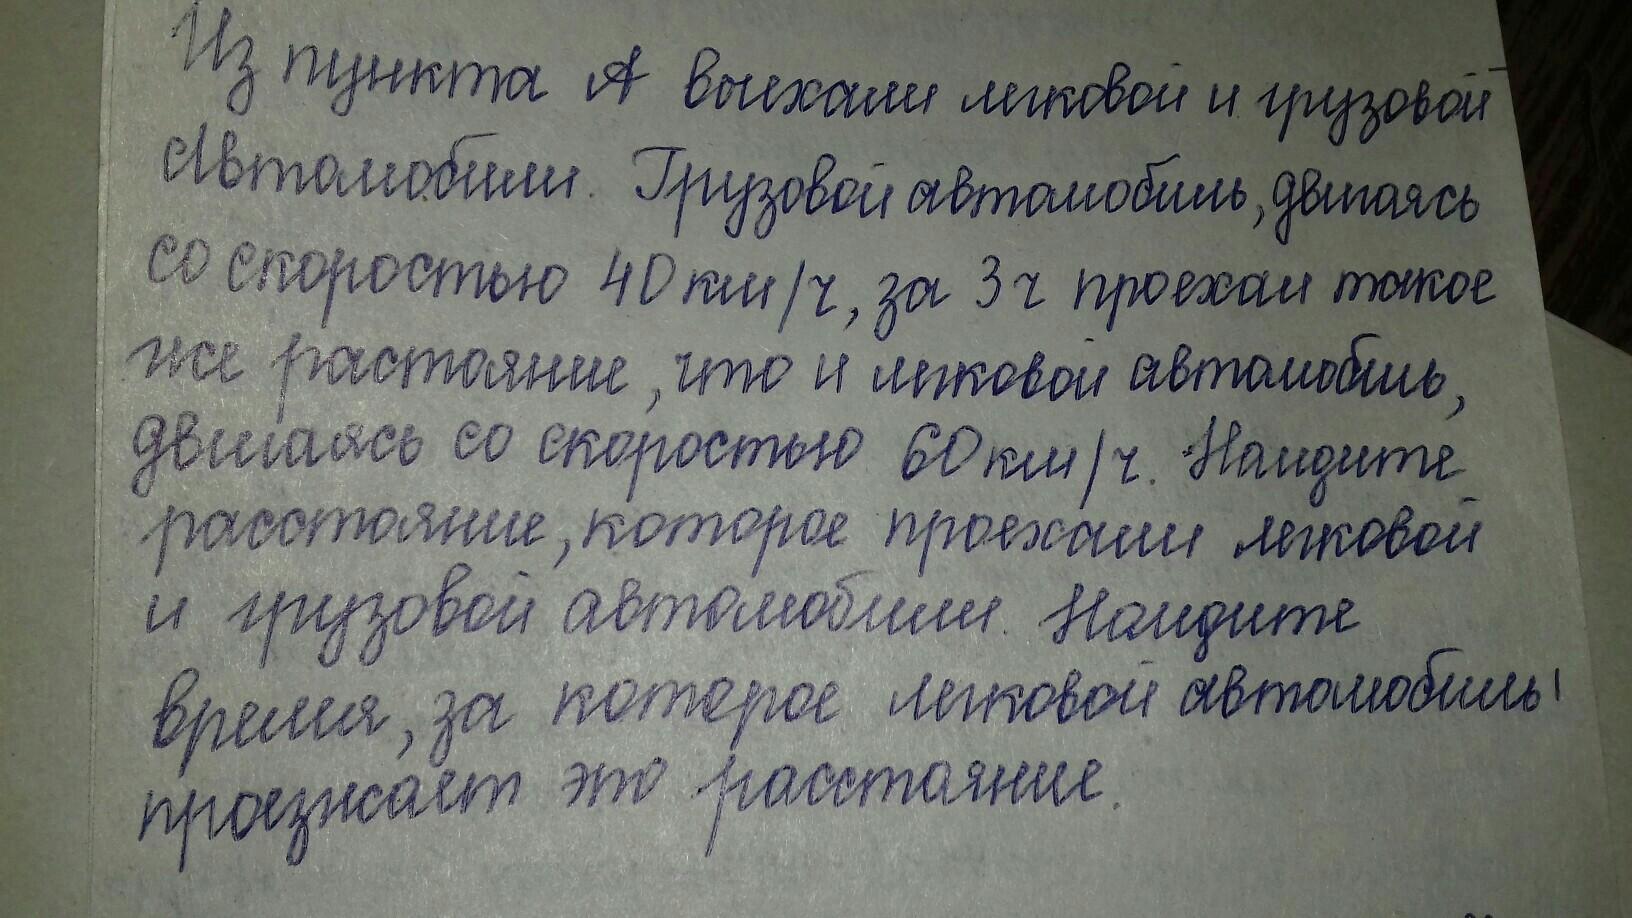 Из пункта А выехали легковой и грузовой
Автомобили. Грузовой автомобиль, двигаясь
со скоростью 40 км/ч, за 3 ч проехал такое
же растояние, что и легковой автомобиль,
двигаясь со скоростью 60 км/ч. Найдите
расстояние, которое проехали легковой
и грузовой автомобили. Найдите
время, за которое легковой автомобиль
проезжает это расстояние.